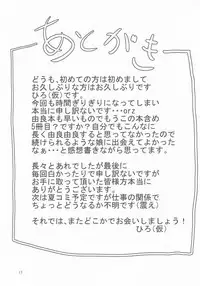 あとがき
どうも、初めての方は初めまして
お久しぶりの方はお久しぶりです
ひろ(仮)です。
今回も時間ぎりぎりになってしまい
本当に申し訳ないです…orz
由良本も早いものでもうこの本含め
5冊目？ですか？自分でもこんなに
長く由良由良すると思ってなかったので
続けられるような娘に出会えてよかった
なぁ…と感想書きながら思ってます。
長々とあれでしたが最後に
毎回白かったりで申し訳ないですが
お手に取って頂いた皆様方本当に
ありがとうございます。
次は夏コミ予定ですが仕事の関係で
ちょっとどうなるか不明です(震え)
それでは、またどこかでお会いしましょう！
ひろ(仮)